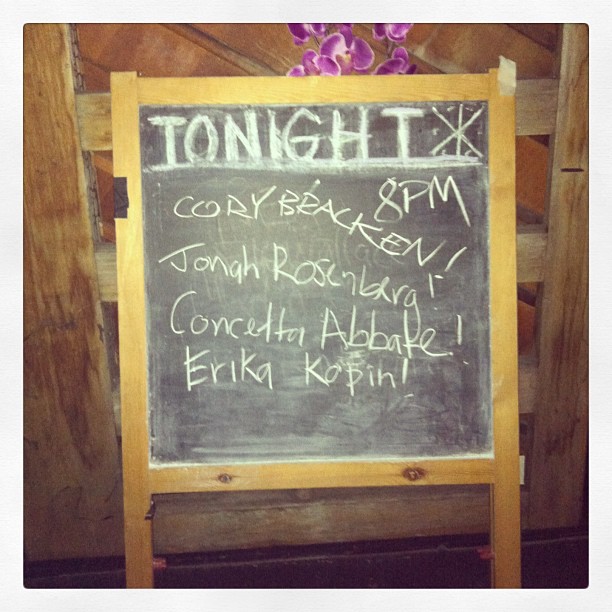 TONIGHT *
8PM
CORY BRACKEN!
Jonah Rosenberg!
Concetta Abbate!
Erika Kopin!